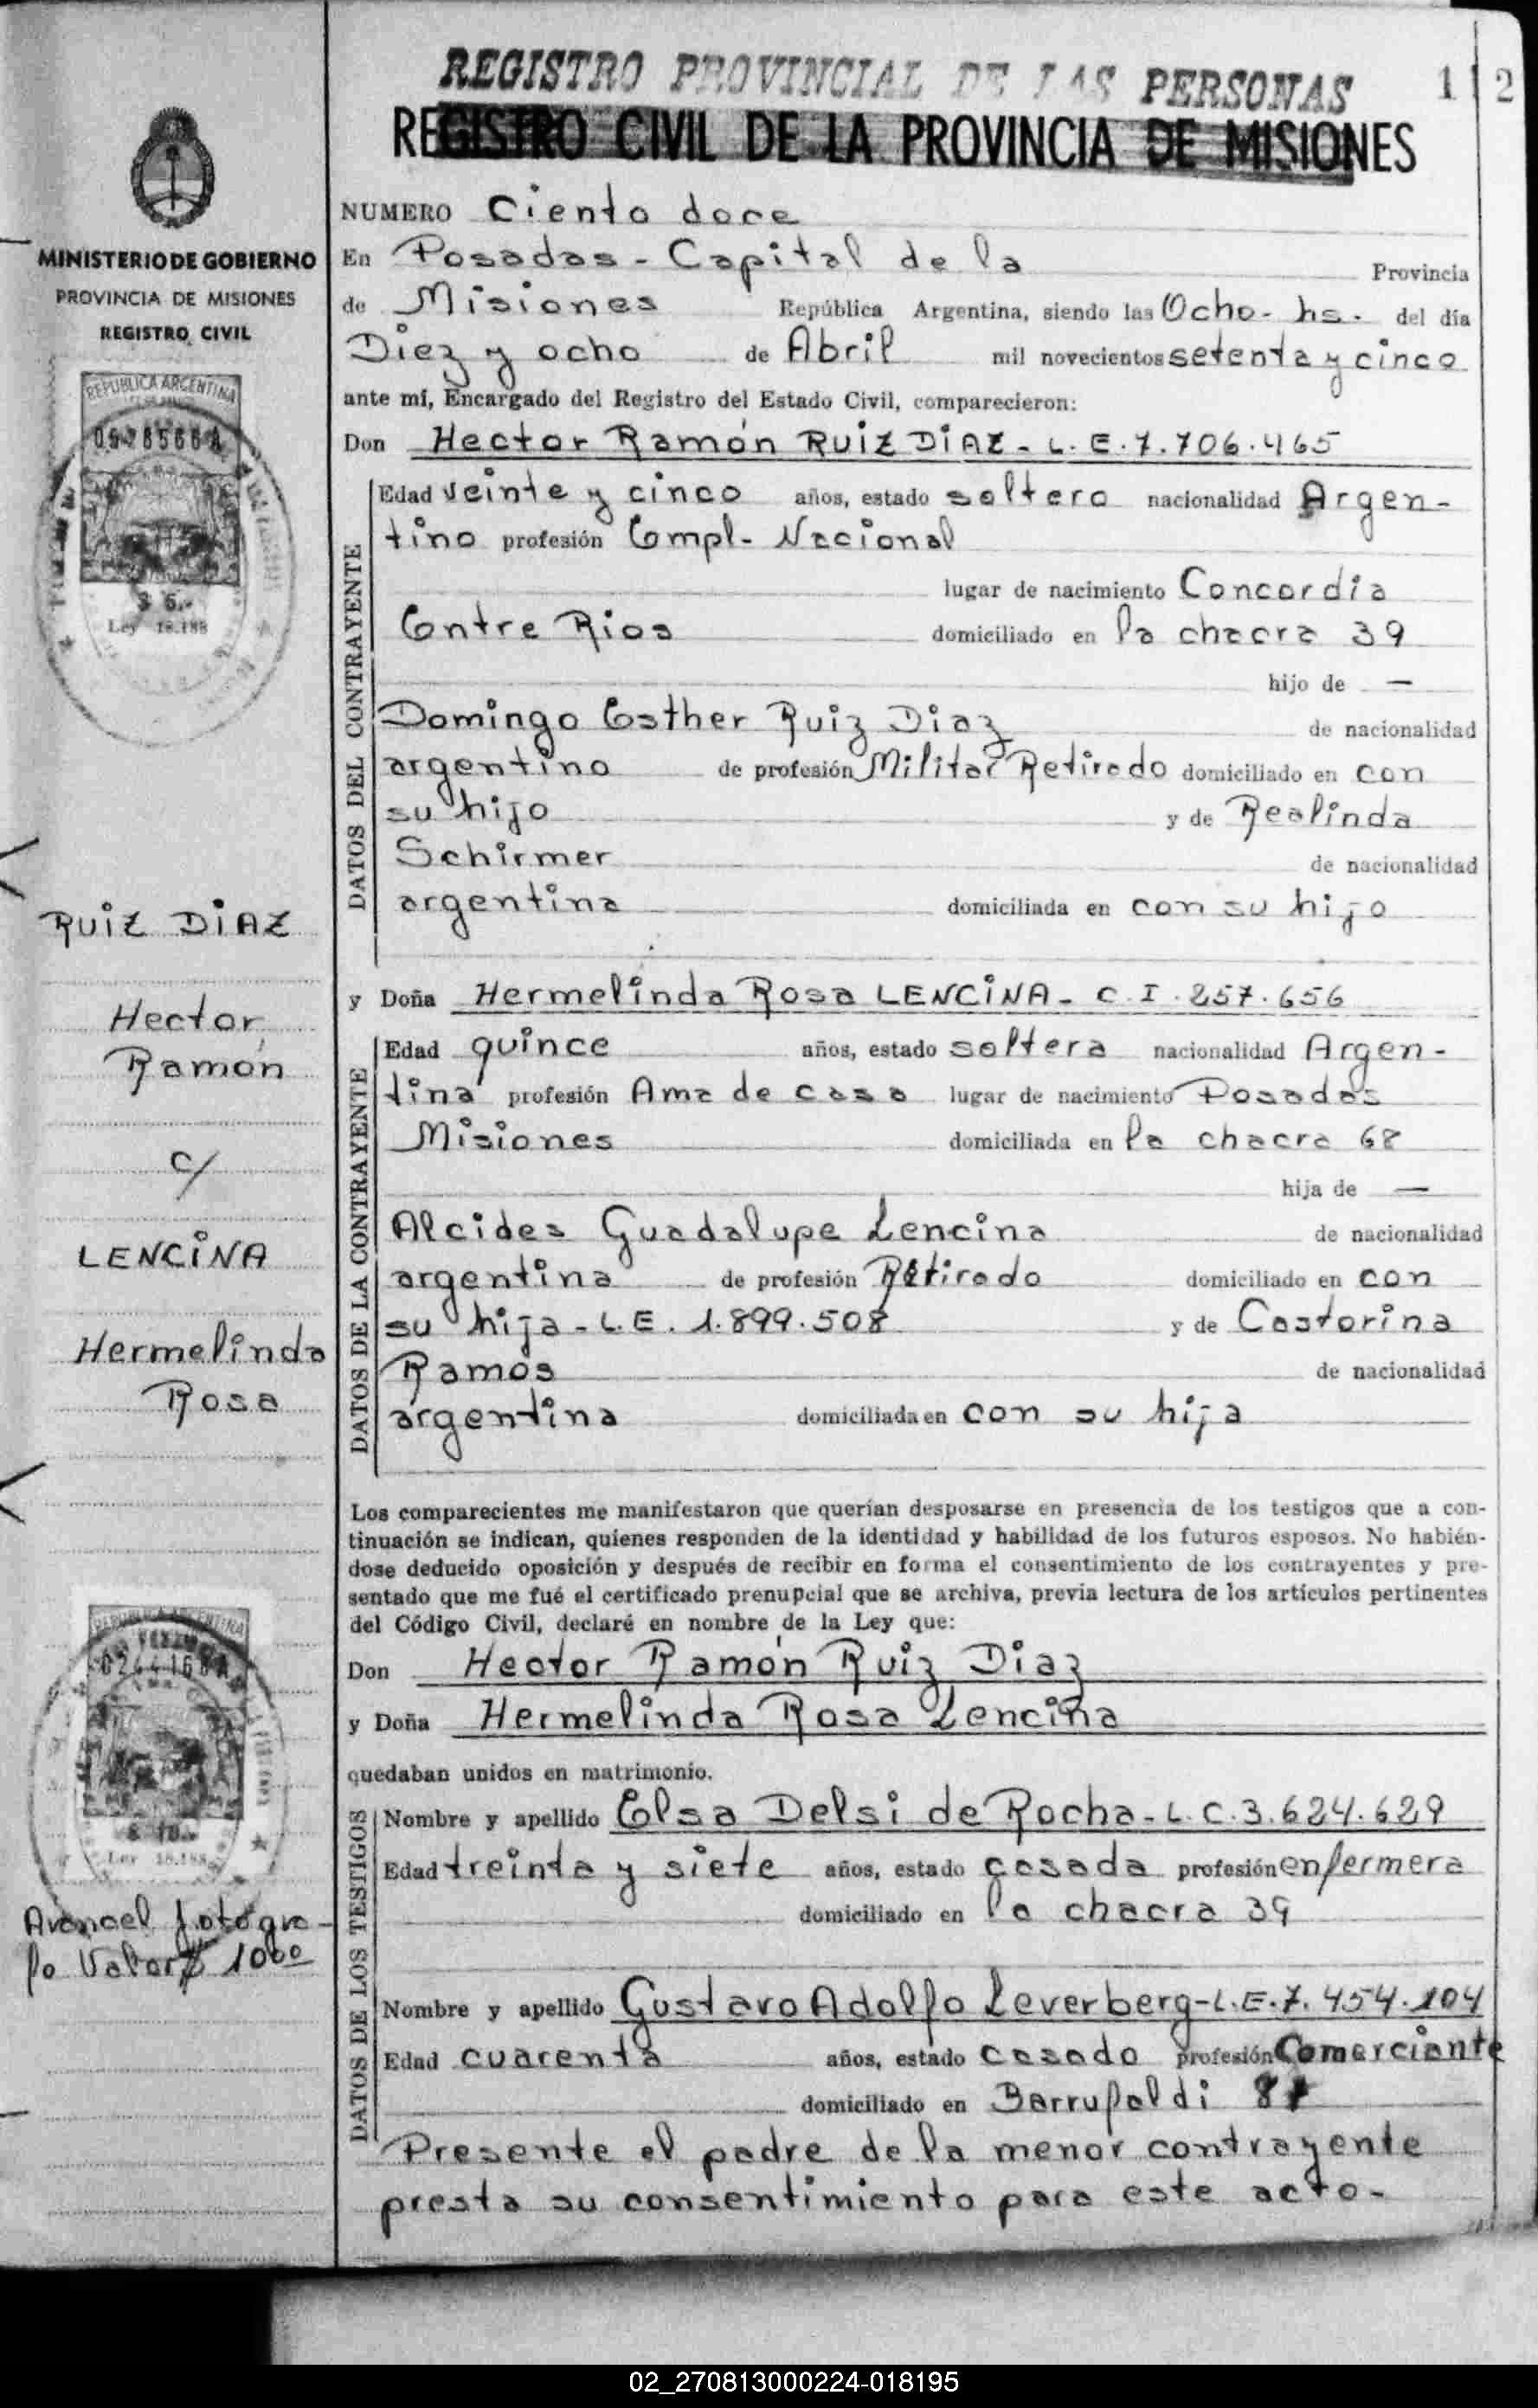 REGISTRO PROVINCIAL DE LAS PERSONAS
112
REGISTRO CIVIL DE LA PROVINCIA DE MISIONES
MINISTERIO DE GOBIERNO
PROVINCIA DE MISIONES
REGISTRO CIVIL
REPUBLICA ARGENTINA
$ 6.-
Ley 18.188
RUIZ DIAZ
Hector
Ramón
c/
LENCINA
Hermelinda
Rosa
Ley 18.188
Arancel fotógra-
fo Valor $ 1000
NUMERO Ciento doce
En Posadas - Capital de la Provincia
de Misiones República Argentina, siendo las Ocho- hs. del día
Diez y ocho de Abril mil novecientos setenta y cinco
ante mí, Encargado del Registro del Estado Civil, comparecieron:
Don Hector Ramón RUIZ DIAZ - L. E. 7.706.465
DATOS DEL CONTRAYENTE
Edad veinte y cinco años, estado soltero nacionalidad Argen-
tino profesión Compl- Nacional
lugar de nacimiento Concordia
Entre Rios domiciliado en la chacra 39
hijo de —
Domingo Esther Ruiz Diaz de nacionalidad
argentino de profesión Militar Retirado domiciliado en con
su hijo y de Realinda
Schirmer de nacionalidad
argentina domiciliada en con su hijo
y Doña Hermelinda Rosa LENCINA - C. I. 257.656
DATOS DE LA CONTRAYENTE
Edad quince años, estado soltera nacionalidad Argen-
tina profesión Ama de casa lugar de nacimiento Posadas
Misiones domiciliada en la chacra 68
hija de —
Alcides Guadalupe Lencina de nacionalidad
argentina de profesión Retirado domiciliado en con
su hija - L.E. 1.899.508 y de Castorina
Ramos de nacionalidad
argentina domiciliada en con su hija
Los comparecientes me manifestaron que querían desposarse en presencia de los testigos que a con-
tinuación se indican, quienes responden de la identidad y habilidad de los futuros esposos. No habién-
dose deducido oposición y después de recibir en forma el consentimiento de los contrayentes y pre-
sentado que me fué el certificado prenupcial que se archiva, previa lectura de los artículos pertinentes
del Código Civil, declaré en nombre de la Ley que:
Don Hector Ramón Ruiz Diaz
y Doña Hermelinda Rosa Lencina
quedaban unidos en matrimonio.
DATOS DE LOS TESTIGOS
Nombre y apellido Elsa Delsi de Rocha - L. C. 3.624.629
Edad treinta y siete años, estado casada profesión enfermera
domiciliado en la chacra 39
Nombre y apellido Gustavo Adolfo Leverberg - L.E. 7.454.104
Edad cuarenta años, estado casado profesión Comerciante
domiciliado en Barrufaldi
Presente el padre de la menor contrayente
presta su consentimiento para este acto-
02_270813000224-018195